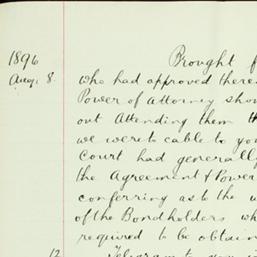 1896 Brought f
Aug. 8. who had approved there
Power of Attorney shou
out Attending them th
we were to cable to yo
Court had generally
the Agreement & Power
conferring as to the w
of the Bondholders wh
required to be obtain
12 Telegram to you i